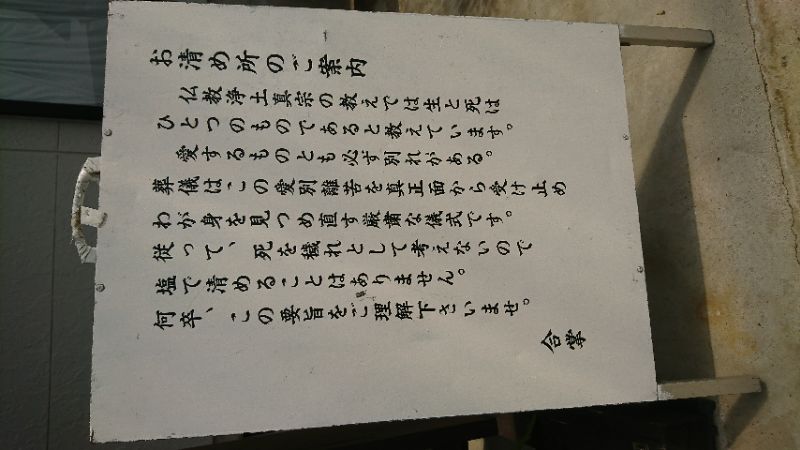 お清め所のご案内
仏教浄土真宗の教えでは生と死は
ひとつのものであると教えています。
愛するものとも必ず別れがある。
葬儀はこの愛別離苦を真正面から受け止め
わが身を見つめ直す厳粛な儀式です。
従って、死を穢れとして考えないので
塩で清めることはありません。
何卒、この要旨をご理解下さいませ。
合掌